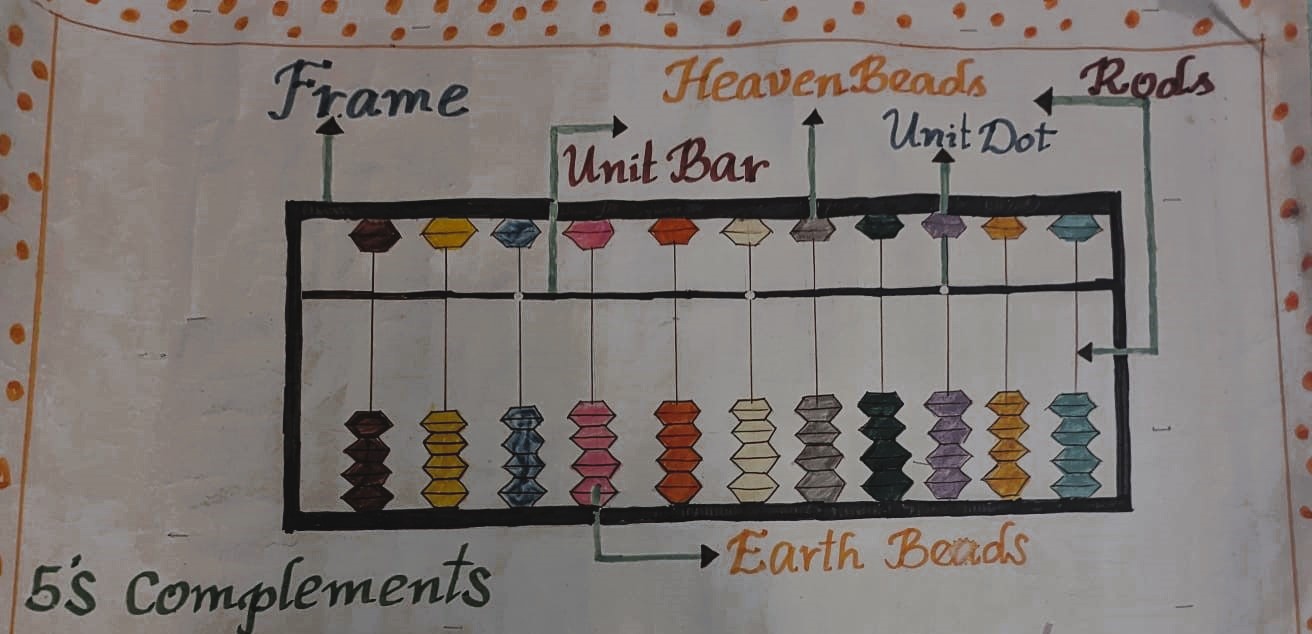 Frame
Heaven Beads
Rods
Unit Bar
Unit Dot
Earth Beads
5's Complements